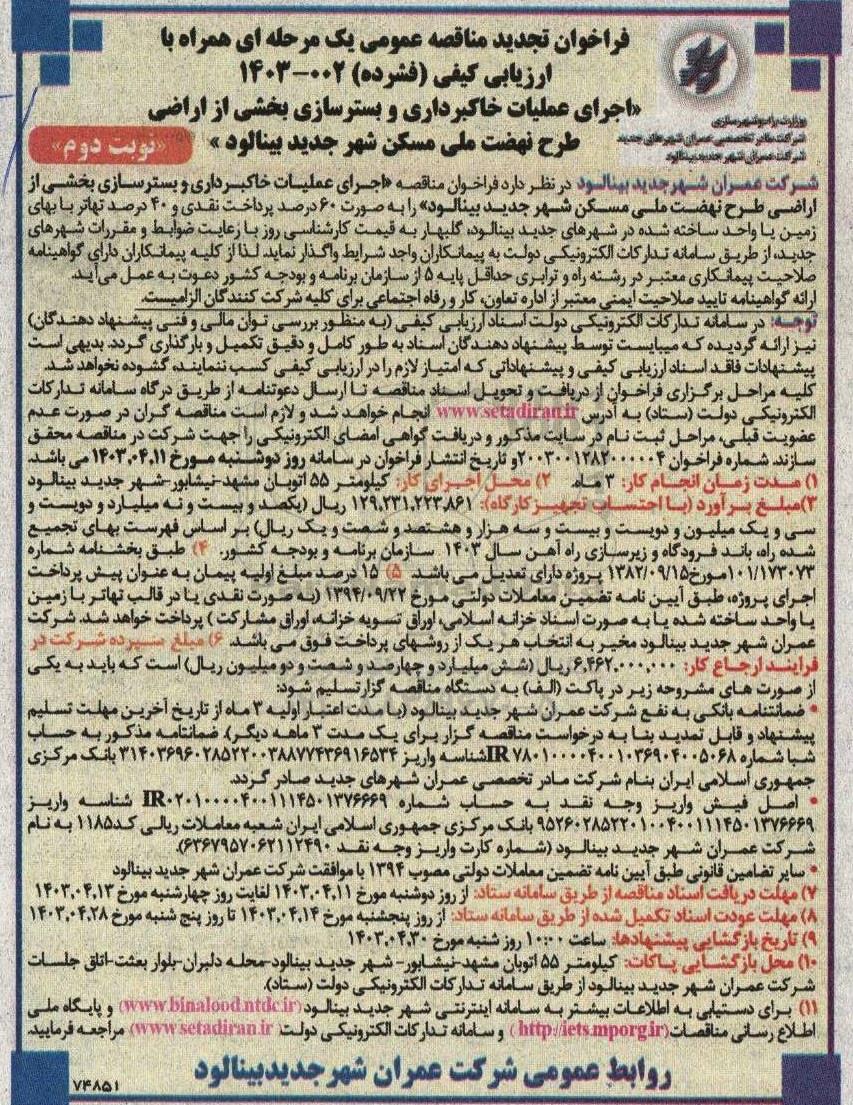 فراخوان تجدید مناقصه عمومی یک مرحله ای همراه با
ارزیابی کیفی (فشرده) ۰۰۲-۱۴۰۳
«اجرای عملیات خاکبرداری و بسترسازی بخشی از اراضی
طرح نهضت ملی مسکن شهر جدید بینالود»
«نوبت دوم»
وزارت راه و شهرسازی
شرکت مادر تخصصی عمران شهرهای جدید
شرکت عمران شهر جدید بینالود
شرکت عمران شهر جدید بینالود در نظر دارد فراخوان مناقصه «اجرای عملیات خاکبرداری و بسترسازی بخشی از
اراضی طرح نهضت ملی مسکن شهر جدید بینالود» را به صورت ۶۰ درصد پرداخت نقدی و ۴۰ درصد تهاتر با بهای
زمین یا واحد ساخته شده در شهرهای جدید بینالود، گلبهار به قیمت کارشناسی روز با رعایت ضوابط و مقررات شهرهای
جدید، از طریق سامانه تدارکات الکترونیکی دولت به پیمانکاران واجد شرایط واگذار نماید. لذا از کلیه پیمانکاران دارای گواهینامه
صلاحیت پیمانکاری معتبر در رشته راه و ترابری حداقل پایه ۵ از سازمان برنامه و بودجه کشور دعوت به عمل می‌آید.
ارائه گواهینامه تایید صلاحیت ایمنی معتبر از اداره تعاون، کار و رفاه اجتماعی برای کلیه شرکت کنندگان الزامیست.
توجه: در سامانه تدارکات الکترونیکی دولت اسناد ارزیابی کیفی (به منظور بررسی توان مالی و فنی پیشنهاد دهندگان)
نیز ارائه گردیده که میبایست توسط پیشنهاد دهندگان اسناد به طور کامل و دقیق تکمیل و بارگذاری گردد. بدیهی است
پیشنهادات فاقد اسناد ارزیابی کیفی و پیشنهاداتی که امتیاز لازم را در ارزیابی کیفی کسب ننمایند، گشوده نخواهد شد.
کلیه مراحل برگزاری فراخوان از دریافت و تحویل اسناد مناقصه تا ارسال دعوتنامه از طریق درگاه سامانه تدارکات
الکترونیکی دولت (ستاد) به آدرس www.setadiran.ir انجام خواهد شد و لازم است مناقصه گران در صورت عدم
عضویت قبلی، مراحل ثبت نام در سایت مذکور و دریافت گواهی امضای الکترونیکی را جهت شرکت در مناقصه محقق
سازند. شماره فراخوان ۲۰۰۳۰۰۱۲۸۲۰۰۰۰۰۴ و تاریخ انتشار فراخوان در سامانه روز دوشنبه مورخ ۱۴۰۳,۰۴,۱۱ می باشد.
۱) مدت زمان انجام کار: ۳ ماه. ۲) محل اجرای کار: کیلومتر ۵۵ اتوبان مشهد-نیشابور-شهر جدید بینالود
۳)مبلغ برآورد (با احتساب تجهیز کارگاه): ۱۲۹,۲۳۱,۲۲۳,۸۶۱ ریال (یکصد و بیست و نه میلیارد و دویست و
سی و یک میلیون و دویست و بیست و سه هزار و هشتصد و شصت و یک ریال) بر اساس فهرست بهای تجمیع
شده راه، باند فرودگاه و زیرسازی راه آهن سال ۱۴۰۳ سازمان برنامه و بودجه کشور. ۴) طبق بخشنامه شماره
۱۰۱/۱۷۳۰۷۳مورخ۱۳۸۲/۰۹/۱۵ پروژه دارای تعدیل می باشد. ۵) ۱۵ درصد مبلغ اولیه پیمان به عنوان پیش پرداخت
اجرای پروژه، طبق آیین نامه تضمین معاملات دولتی مورخ ۱۳۹۴/۰۹/۲۲ (به صورت نقدی یا در قالب تهاتر با زمین
یا واحد ساخته شده یا به صورت اسناد خزانه اسلامی، اوراق تسویه خزانه، اوراق مشارکت) پرداخت خواهد شد. شرکت
عمران شهر جدید بینالود مخیر به انتخاب هر یک از روشهای پرداخت فوق می باشد. ۶) مبلغ سپرده شرکت در
فرایند ارجاع کار: ۶,۴۶۲,۰۰۰,۰۰۰ ریال (شش میلیارد و چهارصد و شصت و دو میلیون ریال) است که باید به یکی
از صورت های مشروحه زیر در پاکت (الف) به دستگاه مناقصه گزار تسلیم شود:
• ضمانتنامه بانکی به نفع شرکت عمران شهر جدید بینالود (با مدت اعتبار اولیه ۳ ماه از تاریخ آخرین مهلت تسلیم
پیشنهاد و قابل تمدید بنا به درخواست مناقصه گزار برای یک مدت ۳ ماهه دیگر). ضمانتنامه مذکور به حساب
شبا شماره IR ۷۸۰۱۰۰۰۰۴۰۰۱۰۳۶۹۰۴۰۰۵۰۶۸شناسه واریز ۳۱۴۰۳۶۹۶۰۲۸۵۲۲۰۰۳۸۸۷۷۴۳۶۹۱۶۵۳۴ بانک مرکزی
جمهوری اسلامی ایران بنام شرکت مادر تخصصی عمران شهرهای جدید صادر گردد.
• اصل فیش واریز وجه نقد به حساب شماره IR۰۲۰۱۰۰۰۰۴۰۰۱۱۱۴۵۰۱۳۷۶۶۶۹ شناسه واریز
۹۵۲۶۰۲۸۵۲۲۰۱۰۰۴۰۰۱۱۱۴۵۰۱۳۷۶۶۶۹ بانک مرکزی جمهوری اسلامی ایران شعبه معاملات ریالی کد۱۱۸۵ به نام
شرکت عمران شهر جدید بینالود (شماره کارت واریز وجه نقد ۶۳۶۷۹۵۷۰۶۲۱۱۲۴۹۰).
• سایر تضامین قانونی طبق آیین نامه تضمین معاملات دولتی مصوب ۱۳۹۴ با موافقت شرکت عمران شهر جدید بینالود
۷) مهلت دریافت اسناد مناقصه از طریق سامانه ستاد: از روز دوشنبه مورخ ۱۴۰۳,۰۴,۱۱ لغایت روز چهارشنبه مورخ ۱۴۰۳,۰۴,۱۳
۸) مهلت عودت اسناد تکمیل شده از طریق سامانه ستاد: از روز پنجشنبه مورخ ۱۴۰۳,۰۴,۱۴ تا روز پنج شنبه مورخ ۱۴۰۳,۰۴,۲۸
۹) تاریخ بازگشایی پیشنهادها: ساعت ۱۰:۰۰ روز شنبه مورخ ۱۴۰۳,۰۴,۳۰
۱۰) محل بازگشایی پاکات: کیلومتر ۵۵ اتوبان مشهد-نیشابور- شهر جدید بینالود-محله دلبران-بلوار بعثت-اتاق جلسات
شرکت عمران شهر جدید بینالود از طریق سامانه تدارکات الکترونیکی دولت (ستاد).
۱۱) برای دستیابی به اطلاعات بیشتر به سامانه اینترنتی شهر جدید بینالود (www.binalood.ntdc.ir) و پایگاه ملی
اطلاع رسانی مناقصات (http://iets.mporg.ir) و سامانه تدارکات الکترونیکی دولت (www.setadiran.ir) مراجعه فرمایید.
روابط عمومی شرکت عمران شهر جدید بینالود
۷۴۸۵۱